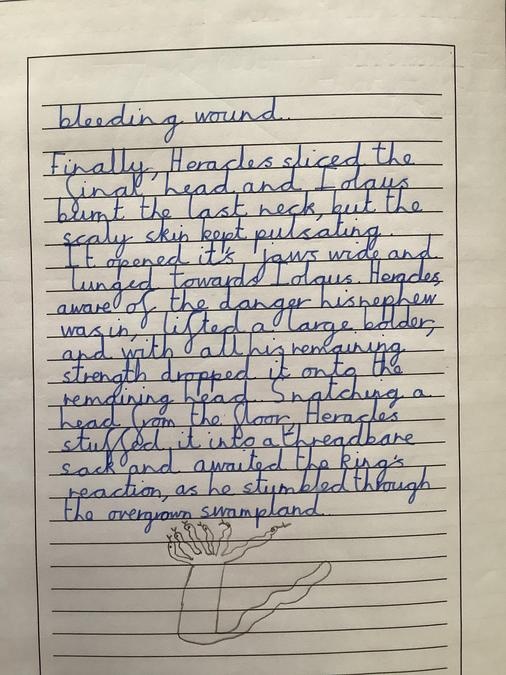 bleeding wound.
Finally, Heracles sliced the
final head and Iolaus
burnt the last neck, but the
scaly skin kept pulsating.
It opened it's jaws wide and
lunged towards Iolaus. Heracles,
aware of the danger his nephew
was in, lifted a large bolder,
and with all his remaining
strength dropped it onto the
remaining head. Snatching a
head from the floor, Heracles
stuffed it into a threadbare
sack and awaited the king's
reaction, as he stumbled through
the overgrown swampland.